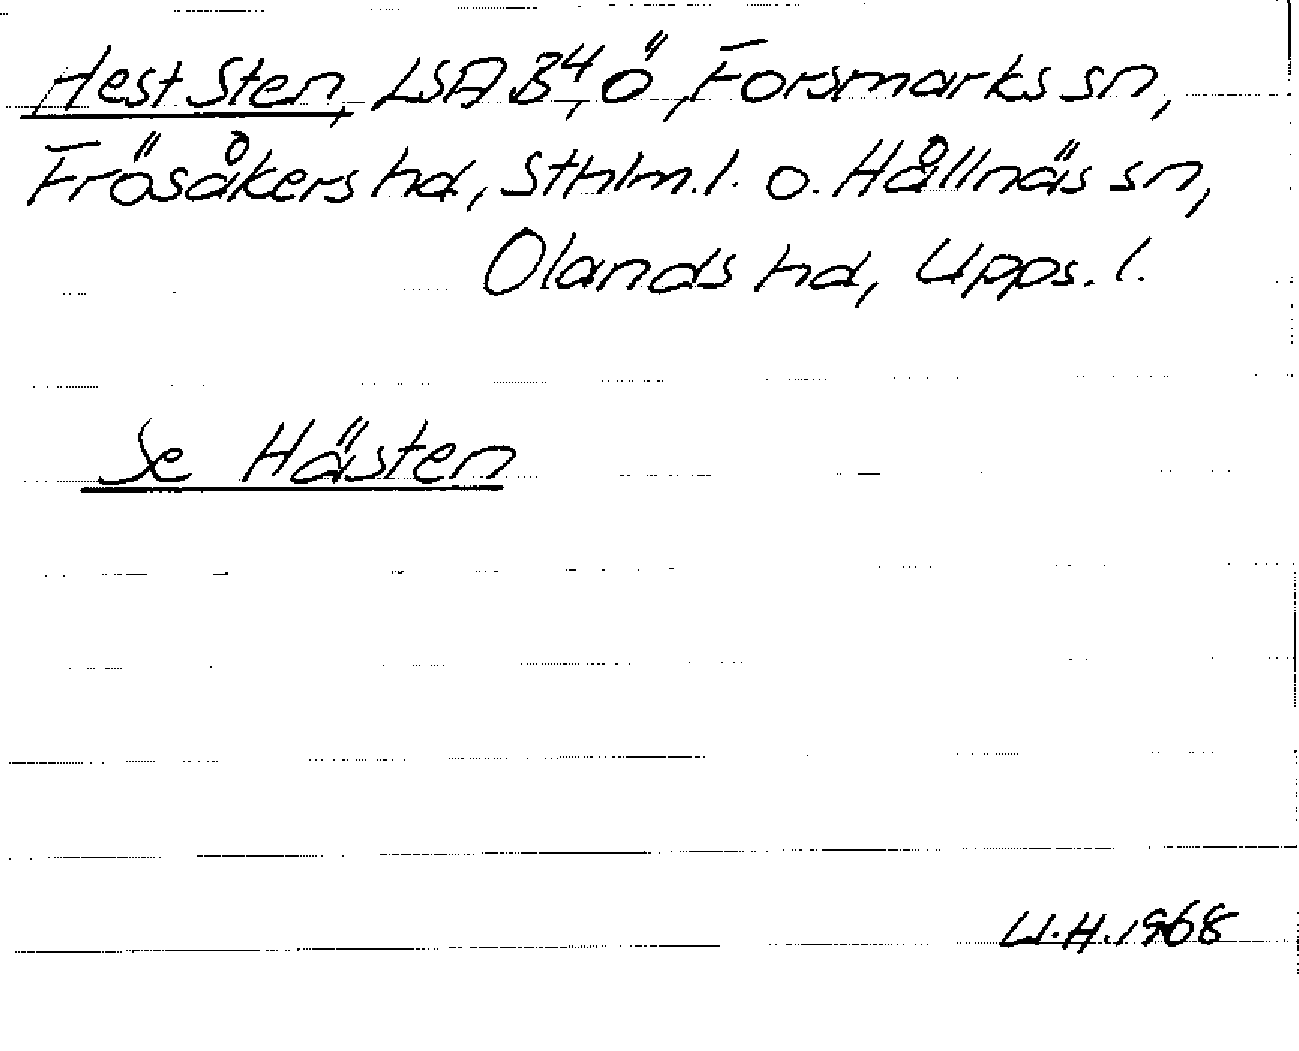 Hest Sten, LSA B⁴, ö, Forsmarks sn,
Frösåkers hd, Sthlm. l. o. Hållnäs sn,
Olands hd, Upps. l.
Se Hästen
W.H. 1968